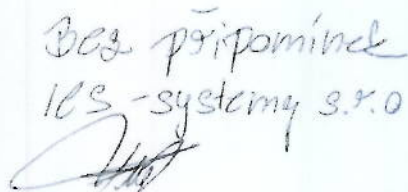 Bez připomínek
IES-systemy s.r.o